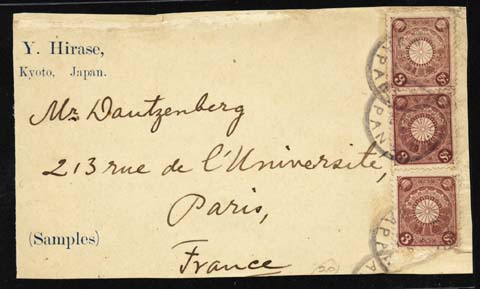 Y. Hirase,
Kyoto, Japan.
Mr. Dautzenberg
213 rue de l'Université,
Paris,
(Samples)
France
JAPAN
JAPAN
JAPAN
(20)